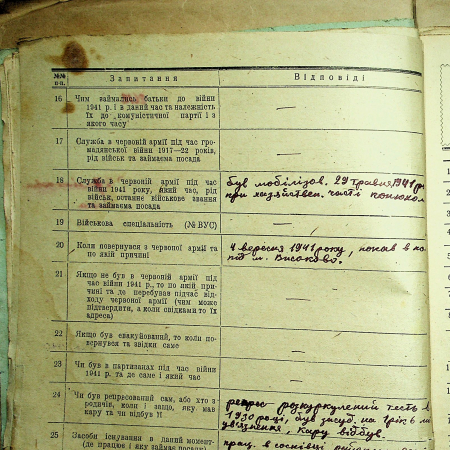 №№ пп. Запитання Відповіді
16 Чим займались батьки до війни
1941 р. і в даний час та належність
їх до „комуністичної партії і з
якого часу" —
17 Служба в червоній армії під час гро-
мадянської війни 1917—22 років,
рід військ та займаєма посада —
18 Служба в червоній армії під час
війни 1941 року, який час, рід
військ, останнє військове звання
та займаєма посада
був мобілізов. 29 травня 1941 р
при хазяйствен. часті конюхом
19 Військова спеціяльність (№ ВУС) —
20 Коли повернувся з червоної армії та
по якій причині
4 вересня 1941 року, попав в по
під м. Високово.
21 Якщо не був в червоній армії під
час війни 1941 р., то по якій при-
чині та де перебував підчас від-
ходу червоної армії (чим може
підтвердити, а коли свідками то їх
адреса) —
22 Якщо був евакуйований, то коли по-
вернувся та звідки саме —
23 Чи був в партизанах під час війни
1941 р. та де саме і який час —
24 Чи був репресований сам, або хто з
родичів, коли і защо, яку мав
кару та чи відбув її
розкуркулений тесть в
1930 році, був засуд. на 3 рік. 6 м
увязнення, кару відбув.
25 Засоби існування в даний момент-
(де працює і яку займає посаду)
прац. в